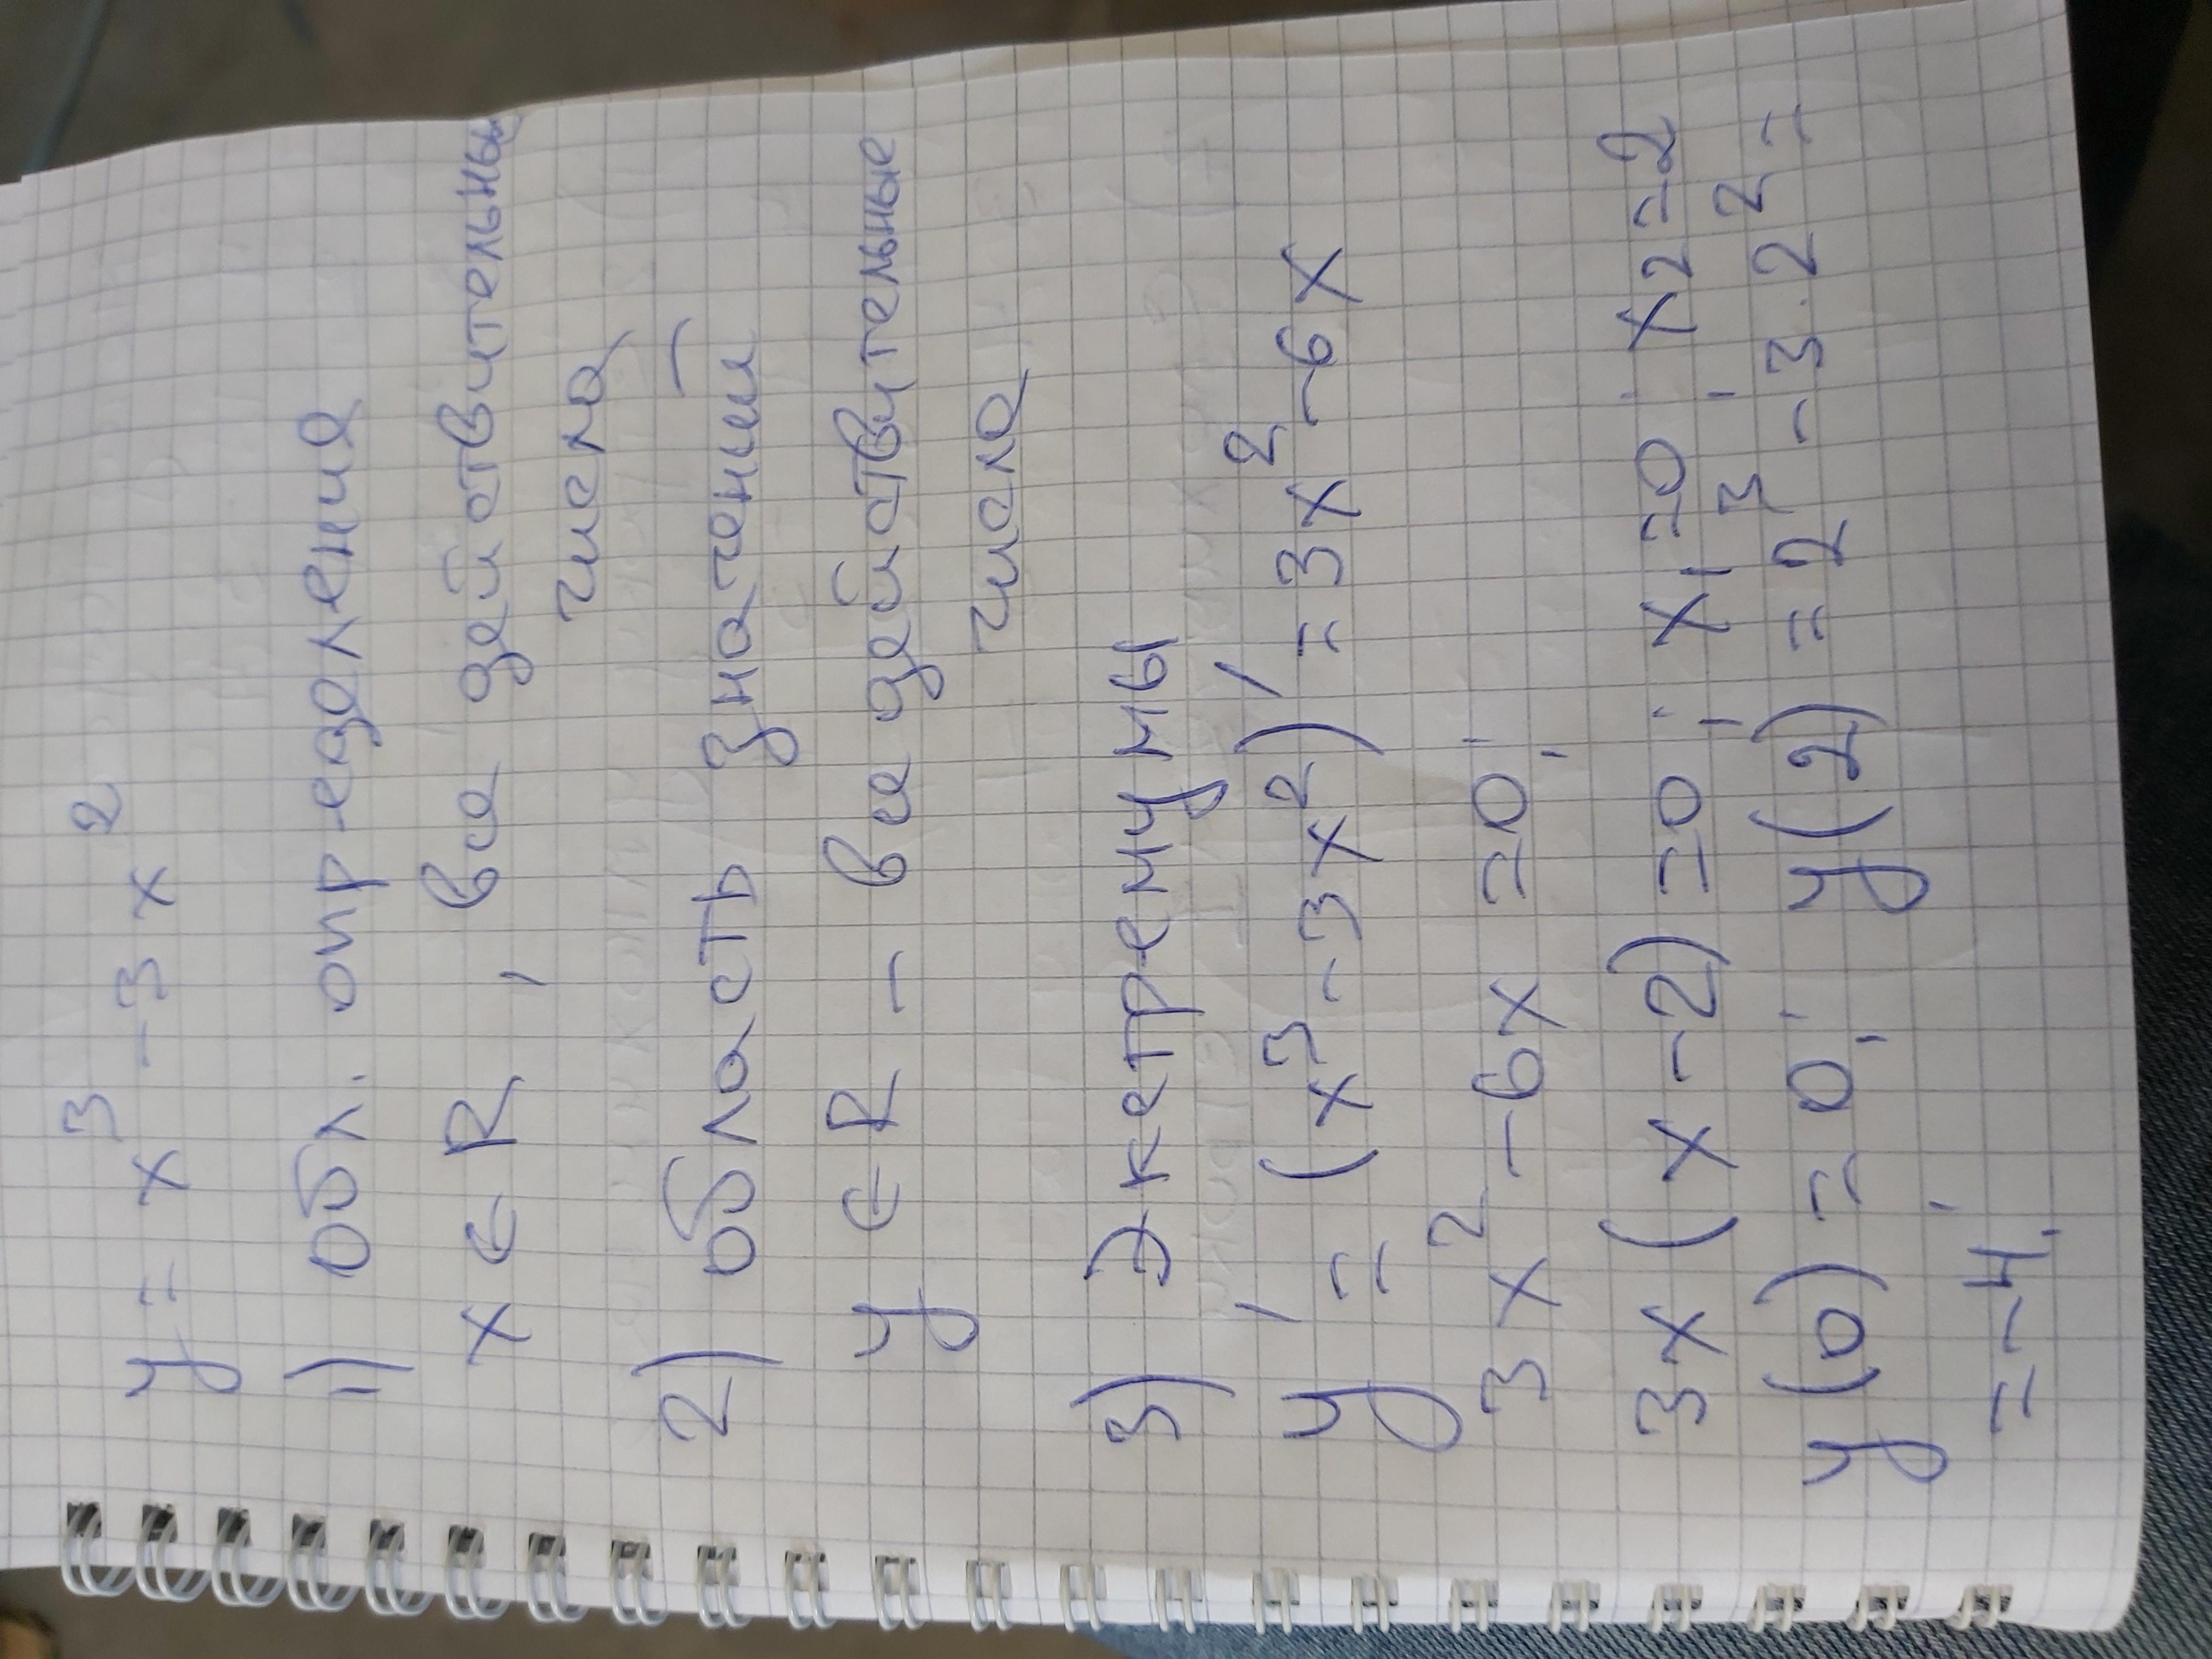 y = x³ - 3x²
1) обл. определения
x ∈ R, все действительны
числа
2) область значений
y ∈ R - все действительные
числа
3) Экстремумы
y' = (x³ - 3x²)' = 3x² - 6x
3x² - 6x = 0;
3x(x - 2) = 0; x₁ = 0; x₂ = 2
y(0) = 0; y(2) = 2³ - 3·2² =
= -4;